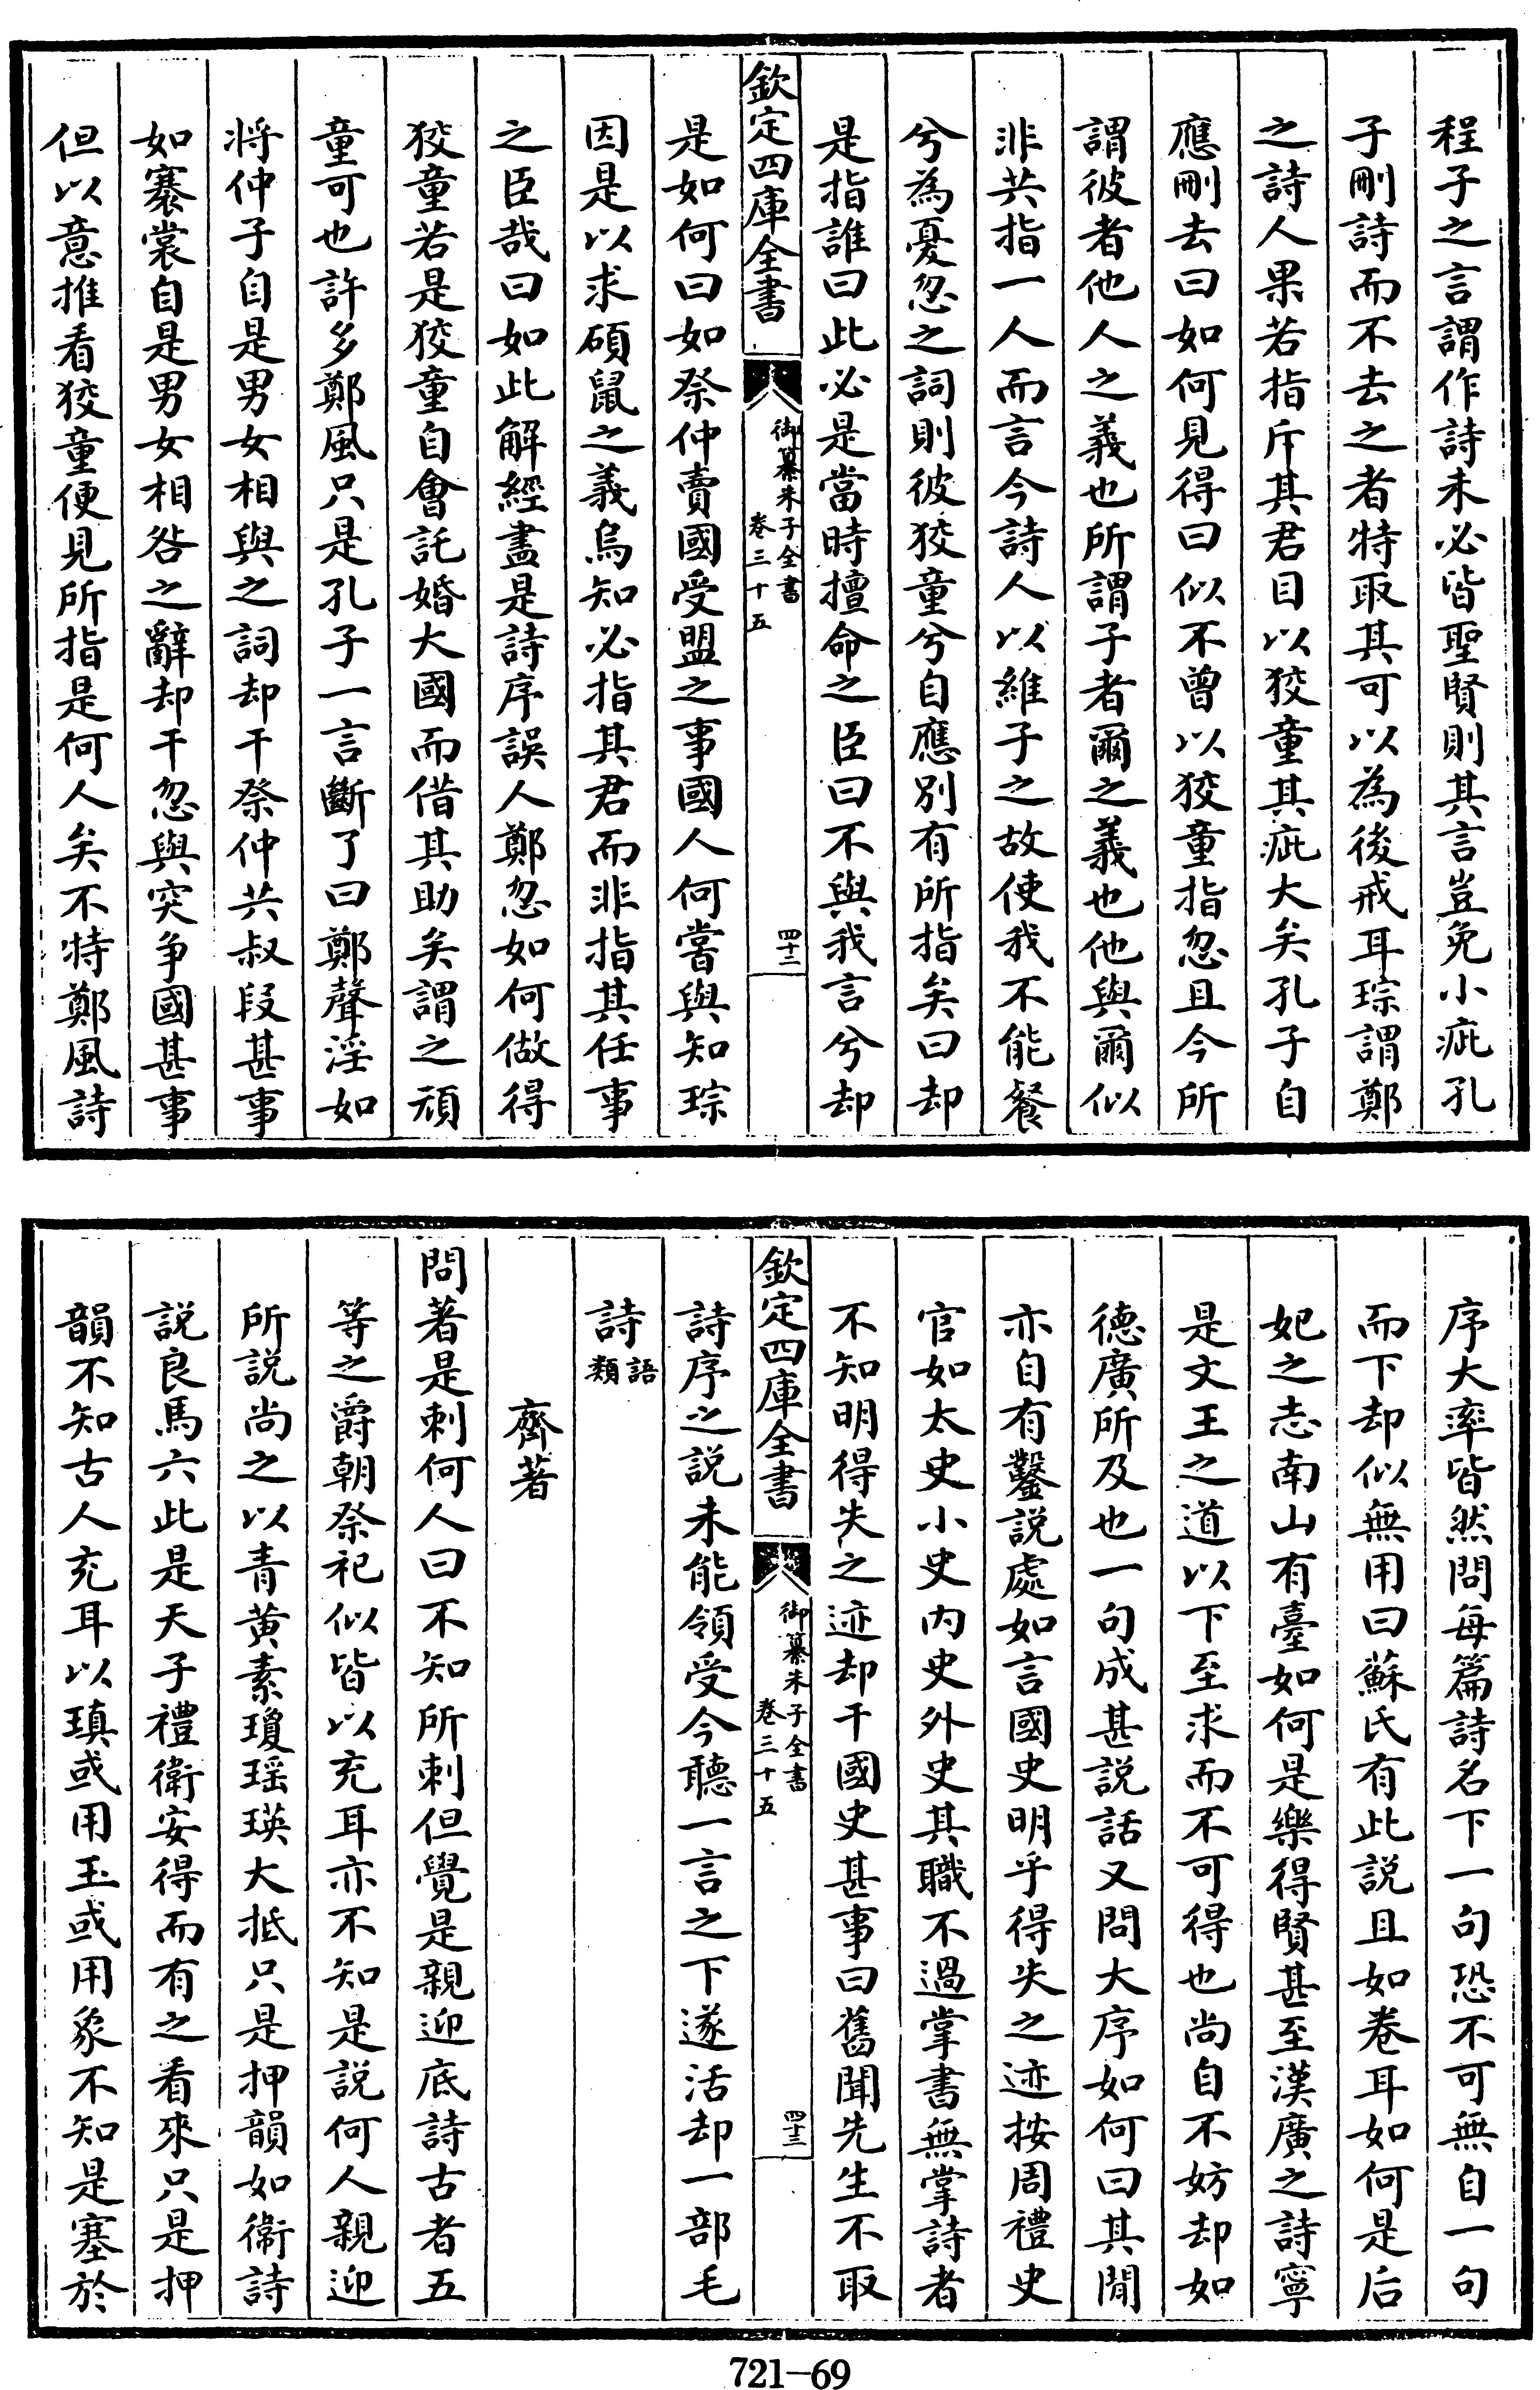 程子之言謂作詩未必皆聖賢則其言豈免小疵孔
子刪詩而不去之者特取其可以為後戒耳琮謂鄭
之詩人果若指斥其君目以狡童其疵大矣孔子自
應刪去曰如何見得曰似不曾以狡童指忽且今所
謂彼者他人之義也所謂子者爾之義也他與爾似
非共指一人而言今詩人以維子之故使我不能餐
兮為憂忽之詞則彼狡童兮自應別有所指矣曰却
是指誰曰此必是當時擅命之臣曰不與我言兮却
欽定四庫全書
御纂朱子全書
卷三十五
四十二
是如何曰如祭仲賣國受盟之事國人何嘗與知琮
因是以求碩鼠之義烏知必指其君而非指其任事
之臣哉曰如此解經盡是詩序誤人鄭忽如何做得
狡童若是狡童自會託婚大國而借其助矣謂之頑
童可也許多鄭風只是孔子一言斷了曰鄭聲淫如
將仲子自是男女相與之詞却干祭仲共叔段甚事
如褰裳自是男女相咎之辭却干忽與突争國甚事
但以意推看狡童便見所指是何人矣不特鄭風詩
序大率皆然問每篇詩名下一句恐不可無自一句
而下却似無用曰蘇氏有此説且如卷耳如何是后
妃之志南山有臺如何是樂得賢甚至漢廣之詩寧
是文王之道以下至求而不可得也尚自不妨却如
德廣所及也一句成甚説話又問大序如何曰其間
亦自有鑿説處如言國史明乎得失之迹按周禮史
官如太史小史内史外史其職不過掌書無掌詩者
不知明得失之迹却干國史甚事曰舊聞先生不取
欽定四庫全書
御纂朱子全書
卷三十五
四十三
詩序之説未能領受今聽一言之下遂活却一部毛
詩語類
齊著
問著是刺何人曰不知所刺但覺是親迎底詩古者五
等之爵朝祭祀似皆以充耳亦不知是説何人親迎
所説尚之以青黄素瓊瑶瑛大抵只是押韻如衞詩
説良馬六此是天子禮衞安得而有之看來只是押
韻不知古人充耳以瑱或用玉或用象不知是塞於
721-69